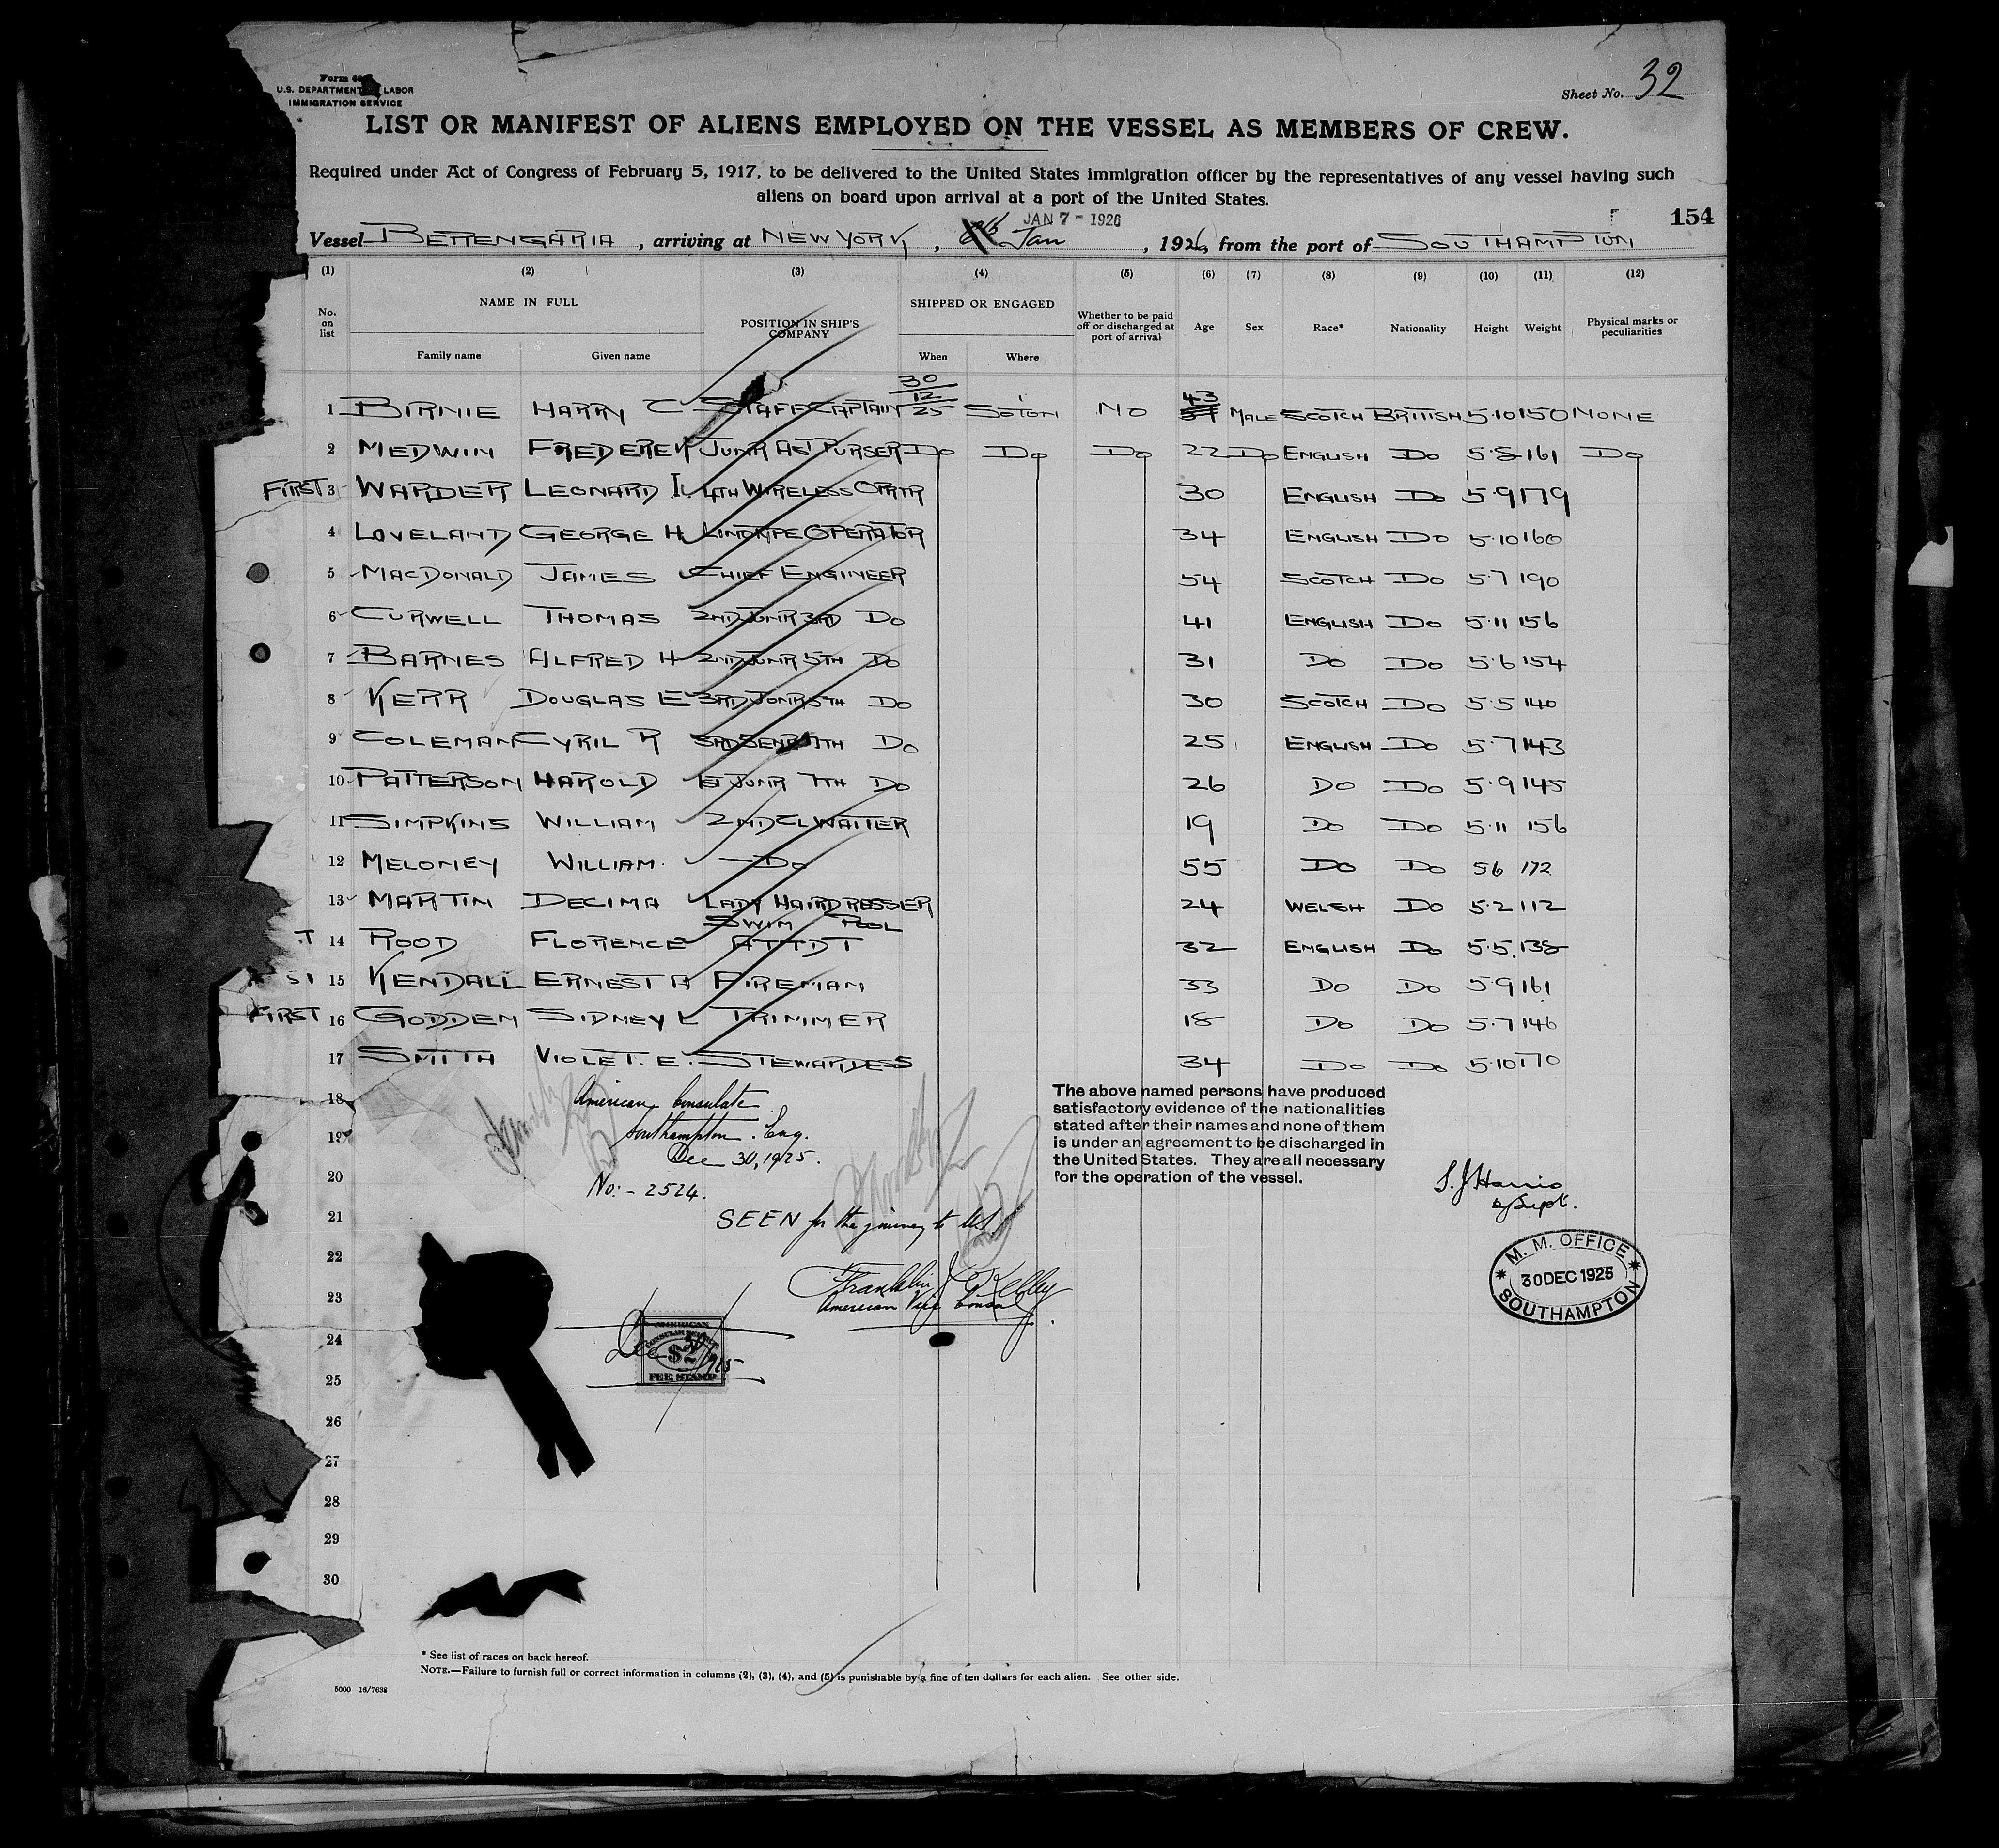 Form 68
U.S. DEPARTMENT LABOR
IMMIGRATION SERVICE
Sheet No. 32
LIST OR MANIFEST OF ALIENS EMPLOYED ON THE VESSEL AS MEMBERS OF CREW.
Required under Act of Congress of February 5, 1917, to be delivered to the United States immigration officer by the representatives of any vessel having such
aliens on board upon arrival at a port of the United States.
JAN 7 - 1926
154
Vessel BERENGARIA, arriving at NEW YORK, Jan, 1926, from the port of SOUTHAMPTON
(1) (2) (3) (4) (5) (6) (7) (8) (9) (10) (11) (12)
No. on list NAME IN FULL Family name Given name POSITION IN SHIP'S COMPANY SHIPPED OR ENGAGED When Where Whether to be paid off or discharged at port of arrival Age Sex Race* Nationality Height Weight Physical marks or peculiarities
1 BIRNIE HARRY C STAFF CAPTAIN 30/12/25 SOTON NO 43 MALE SCOTCH BRITISH 5·10 150 NONE
2 MEDWIN FREDEREK JUNR AST PURSER DO DO DO 22 DO ENGLISH DO 5·8 161 DO
FIRST 3 WARDER LEONARD I. 4TH WIRELESS OPRTR 30 ENGLISH DO 5·9 179
4 LOVELAND GEORGE H LINOTYPE OPERATOR 34 ENGLISH DO 5·10 160
5 MACDONALD JAMES CHIEF ENGINEER 54 SCOTCH DO 5·7 190
6 CURWELL THOMAS 2ND JUNR 3RD DO 41 ENGLISH DO 5·11 156
7 BARNES ALFRED H 2ND JUNR 5TH DO 31 DO DO 5·6 154
8 KERR DOUGLAS E 3RD JUNR 5TH DO 30 SCOTCH DO 5·5 140
9 COLEMAN CYRIL R 3RD SENR 7TH DO 25 ENGLISH DO 5·7 143
10 PATTERSON HAROLD 1ST JUNR 7TH DO 26 DO DO 5·9 145
11 SIMPKINS WILLIAM 2ND CL WAITER 19 DO DO 5·11 156
12 MELONEY WILLIAM. DO 55 DO DO 56 172
13 MARTIN DECIMA LADY HAIRDRESSER 24 WELSH DO 5·2 112
SWIM POOL
14 ROOD FLORENCE ATTDT 32 ENGLISH DO 5·5 138
ST 15 KENDALL ERNEST A FIREMAN 33 DO DO 5·9 161
FIRST 16 GODDEN SIDNEY L TRIMMER 18 DO DO 5·7 146
17 SMITH VIOLET. E. STEWARDESS 34 DO DO 5·10 170
18 American Consulate
19 Southampton. Eng.
Dec 30, 1925.
20 No:- 2524.
21 SEEN for the journey to U.S.
The above named persons have produced
satisfactory evidence of the nationalities
stated after their names and none of them
is under an agreement to be discharged in
the United States. They are all necessary
for the operation of the vessel.
S. J. Harris
22
Franklin C Kelley
American Vice Consul
M. M. OFFICE
30 DEC 1925
SOUTHAMPTON
23
24
AMERICAN
CONSULAR SERVICE
$2
FEE STAMP
Dec 30/1925
25
26
27
28
29
30
* See list of races on back hereof.
NOTE.—Failure to furnish full or correct information in columns (2), (3), (4), and (5) is punishable by a fine of ten dollars for each alien. See other side.
5000 16/7638